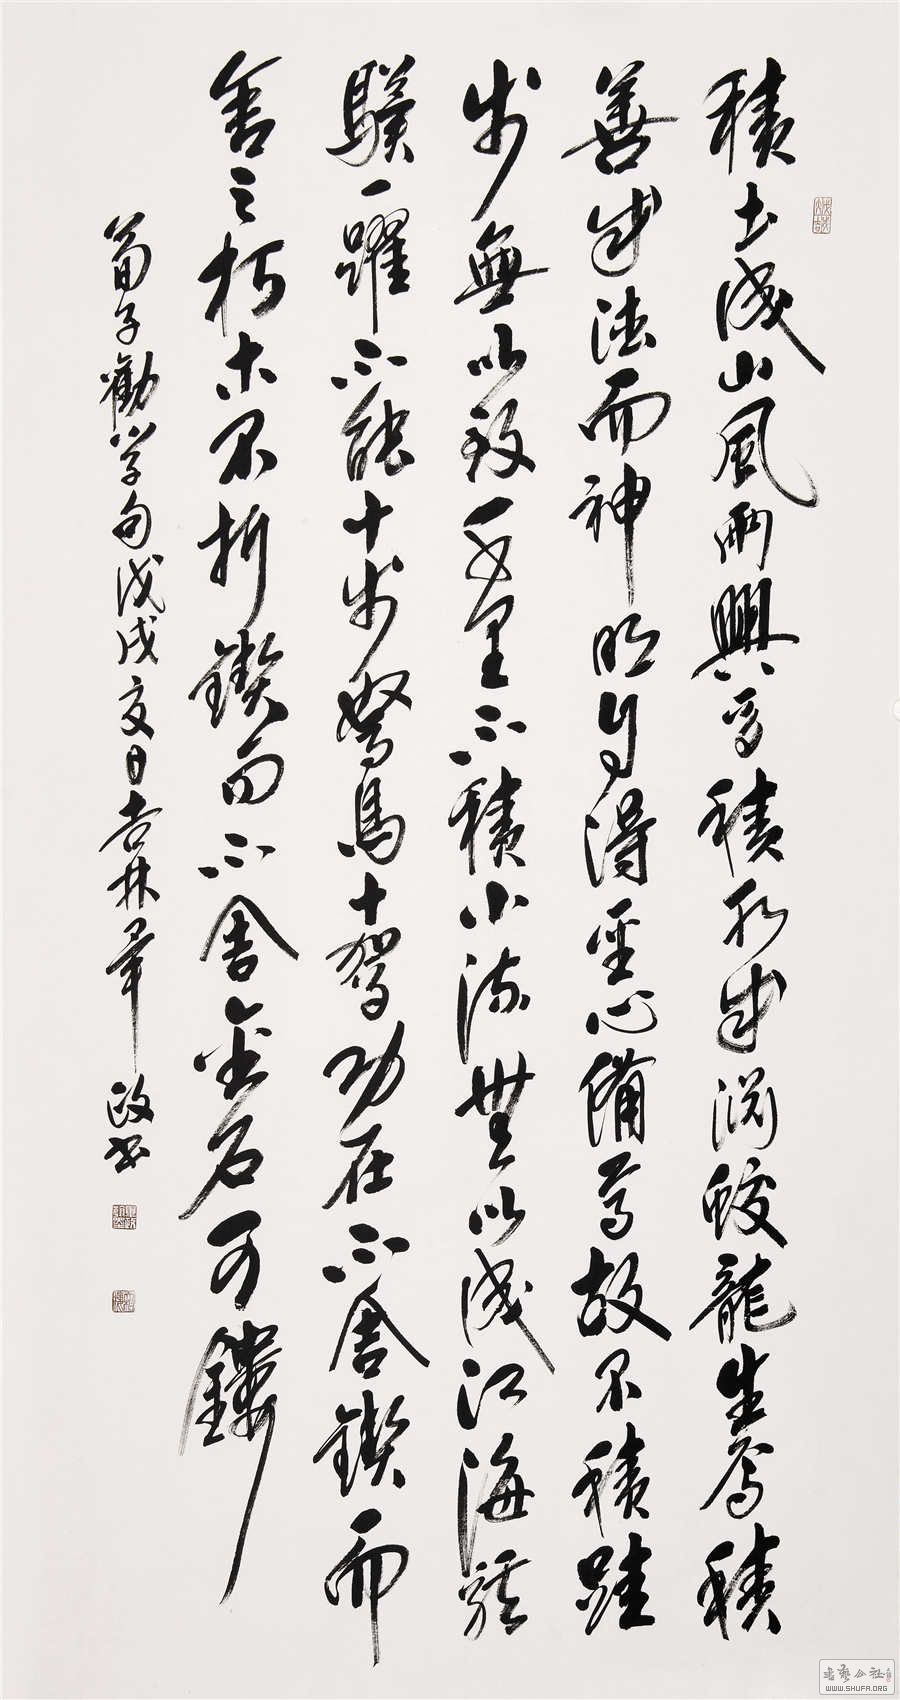 積土成山風雨興焉積水成淵蛟龍生焉積
善成德而神明自得聖心備焉故不積跬
步無以致千里不積小流無以成江海騏
驥一躍不能十步駑馬十駕功在不舍鍥而
舍之朽木不折鍥而不舍金石可鏤
荀子勸學句戊戌夏日吉林畢政書
書藝公社
WWW.SHUFA.ORG